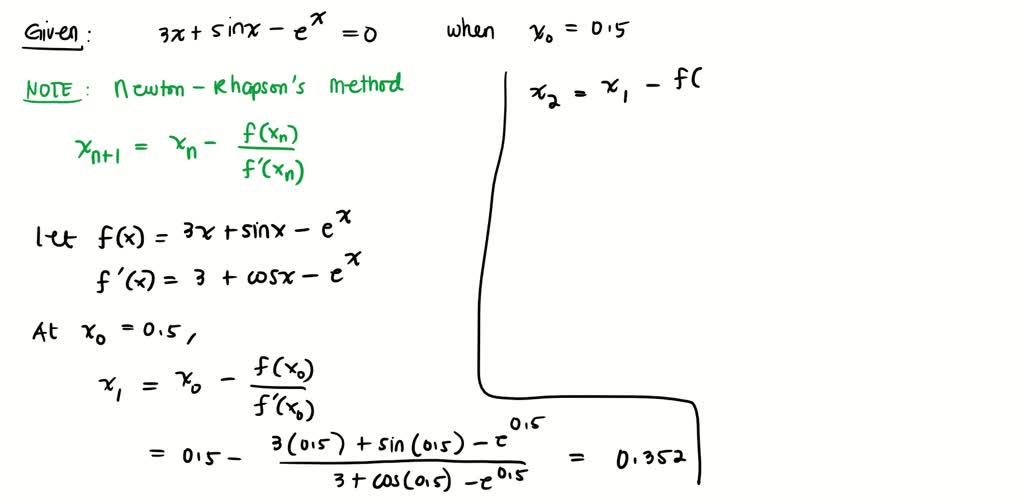 Given: 3x + sinx - e^x = 0 when x₀ = 0.5
NOTE: Newton - Rhapson's method
xₙ₊₁ = xₙ - f(xₙ)/f'(xₙ)
let f(x) = 3x + sinx - e^x
f'(x) = 3 + cosx - e^x
At x₀ = 0.5,
x₁ = x₀ - f(x₀)/f'(x₀)
= 0.5 - (3(0.5) + sin(0.5) - e^0.5)/(3 + cos(0.5) - e^0.5) = 0.352
x₂ = x₁ - f(